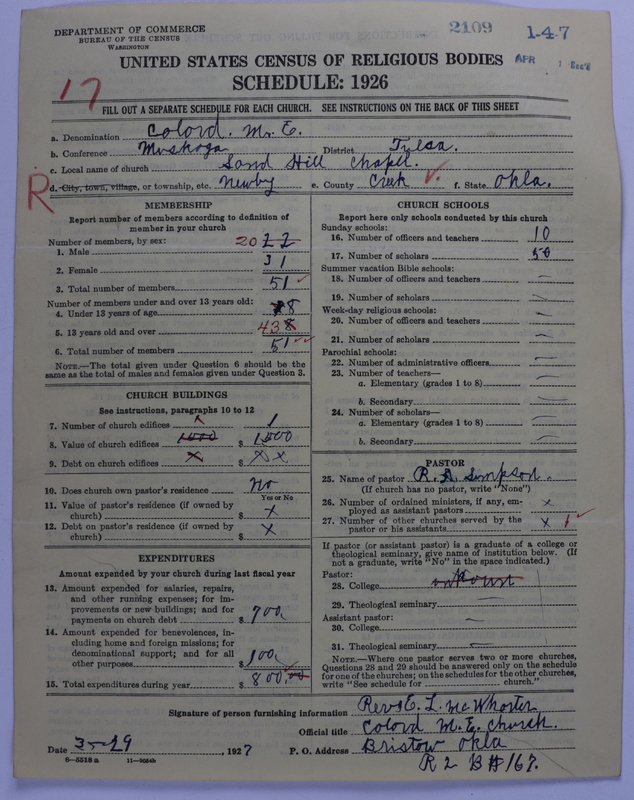 DEPARTMENT OF COMMERCE
BUREAU OF THE CENSUS
WASHINGTON
2109
1-4-7
APR
UNITED STATES CENSUS OF RELIGIOUS BODIES
SCHEDULE: 1926
17
FILL OUT A SEPARATE SCHEDULE FOR EACH CHURCH. SEE INSTRUCTIONS ON THE BACK OF THIS SHEET
a. Denomination Colord. M. E.
b. Conference Muskoga District Tulsa.
c. Local name of church Sand Hill Chapel.
R
d. City, town, village, or township, etc. Newby e. County Creek f. State Okla.
MEMBERSHIP
Report number of members according to definition of member in your church
Number of members, by sex:
1. Male 20 22
2. Female 31
3. Total number of members 51
Number of members under and over 13 years old:
4. Under 13 years of age 8
5. 13 years old and over 43
6. Total number of members 51
NOTE.—The total given under Question 6 should be the same as the total of males and females given under Question 3.
CHURCH BUILDINGS
See instructions, paragraphs 10 to 12
7. Number of church edifices 1
8. Value of church edifices 1500 $ 1500
9. Debt on church edifices x $ x x
10. Does church own pastor's residence No
Yes or No
11. Value of pastor's residence (if owned by church) $ x
12. Debt on pastor's residence (if owned by church) $ x
EXPENDITURES
Amount expended by your church during last fiscal year
13. Amount expended for salaries, repairs, and other running expenses; for improvements or new buildings; and for payments on church debt $ 700.
14. Amount expended for benevolences, including home and foreign missions; for denominational support; and for all other purposes $ 100.
15. Total expenditures during year $ 800.00
CHURCH SCHOOLS
Report here only schools conducted by this church
Sunday schools:
16. Number of officers and teachers 10
17. Number of scholars 50
Summer vacation Bible schools:
18. Number of officers and teachers —
19. Number of scholars —
Week-day religious schools:
20. Number of officers and teachers —
21. Number of scholars —
Parochial schools:
22. Number of administrative officers —
23. Number of teachers—
a. Elementary (grades 1 to 8) —
b. Secondary —
24. Number of scholars—
a. Elementary (grades 1 to 8) —
b. Secondary —
PASTOR
25. Name of pastor R. A. Simpson.
(If church has no pastor, write "None")
26. Number of ordained ministers, if any, employed as assistant pastors x
27. Number of other churches served by the pastor or his assistants x
If pastor (or assistant pastor) is a graduate of a college or theological seminary, give name of institution below. (If not a graduate, write "No" in the space indicated.)
Pastor:
28. College
29. Theological seminary
Assistant pastor:
30. College
31. Theological seminary
NOTE.—Where one pastor serves two or more churches, Questions 28 and 29 should be answered only on the schedule for one of the churches; on the schedules for the other churches, write "See schedule for church."
Signature of person furnishing information Rev. E. L. McWhorter
Official title Colord M. E. Church.
Date 3-29, 1927 P. O. Address Bristow Okla
R 2 B# 167.
8—5518a 11—9084b